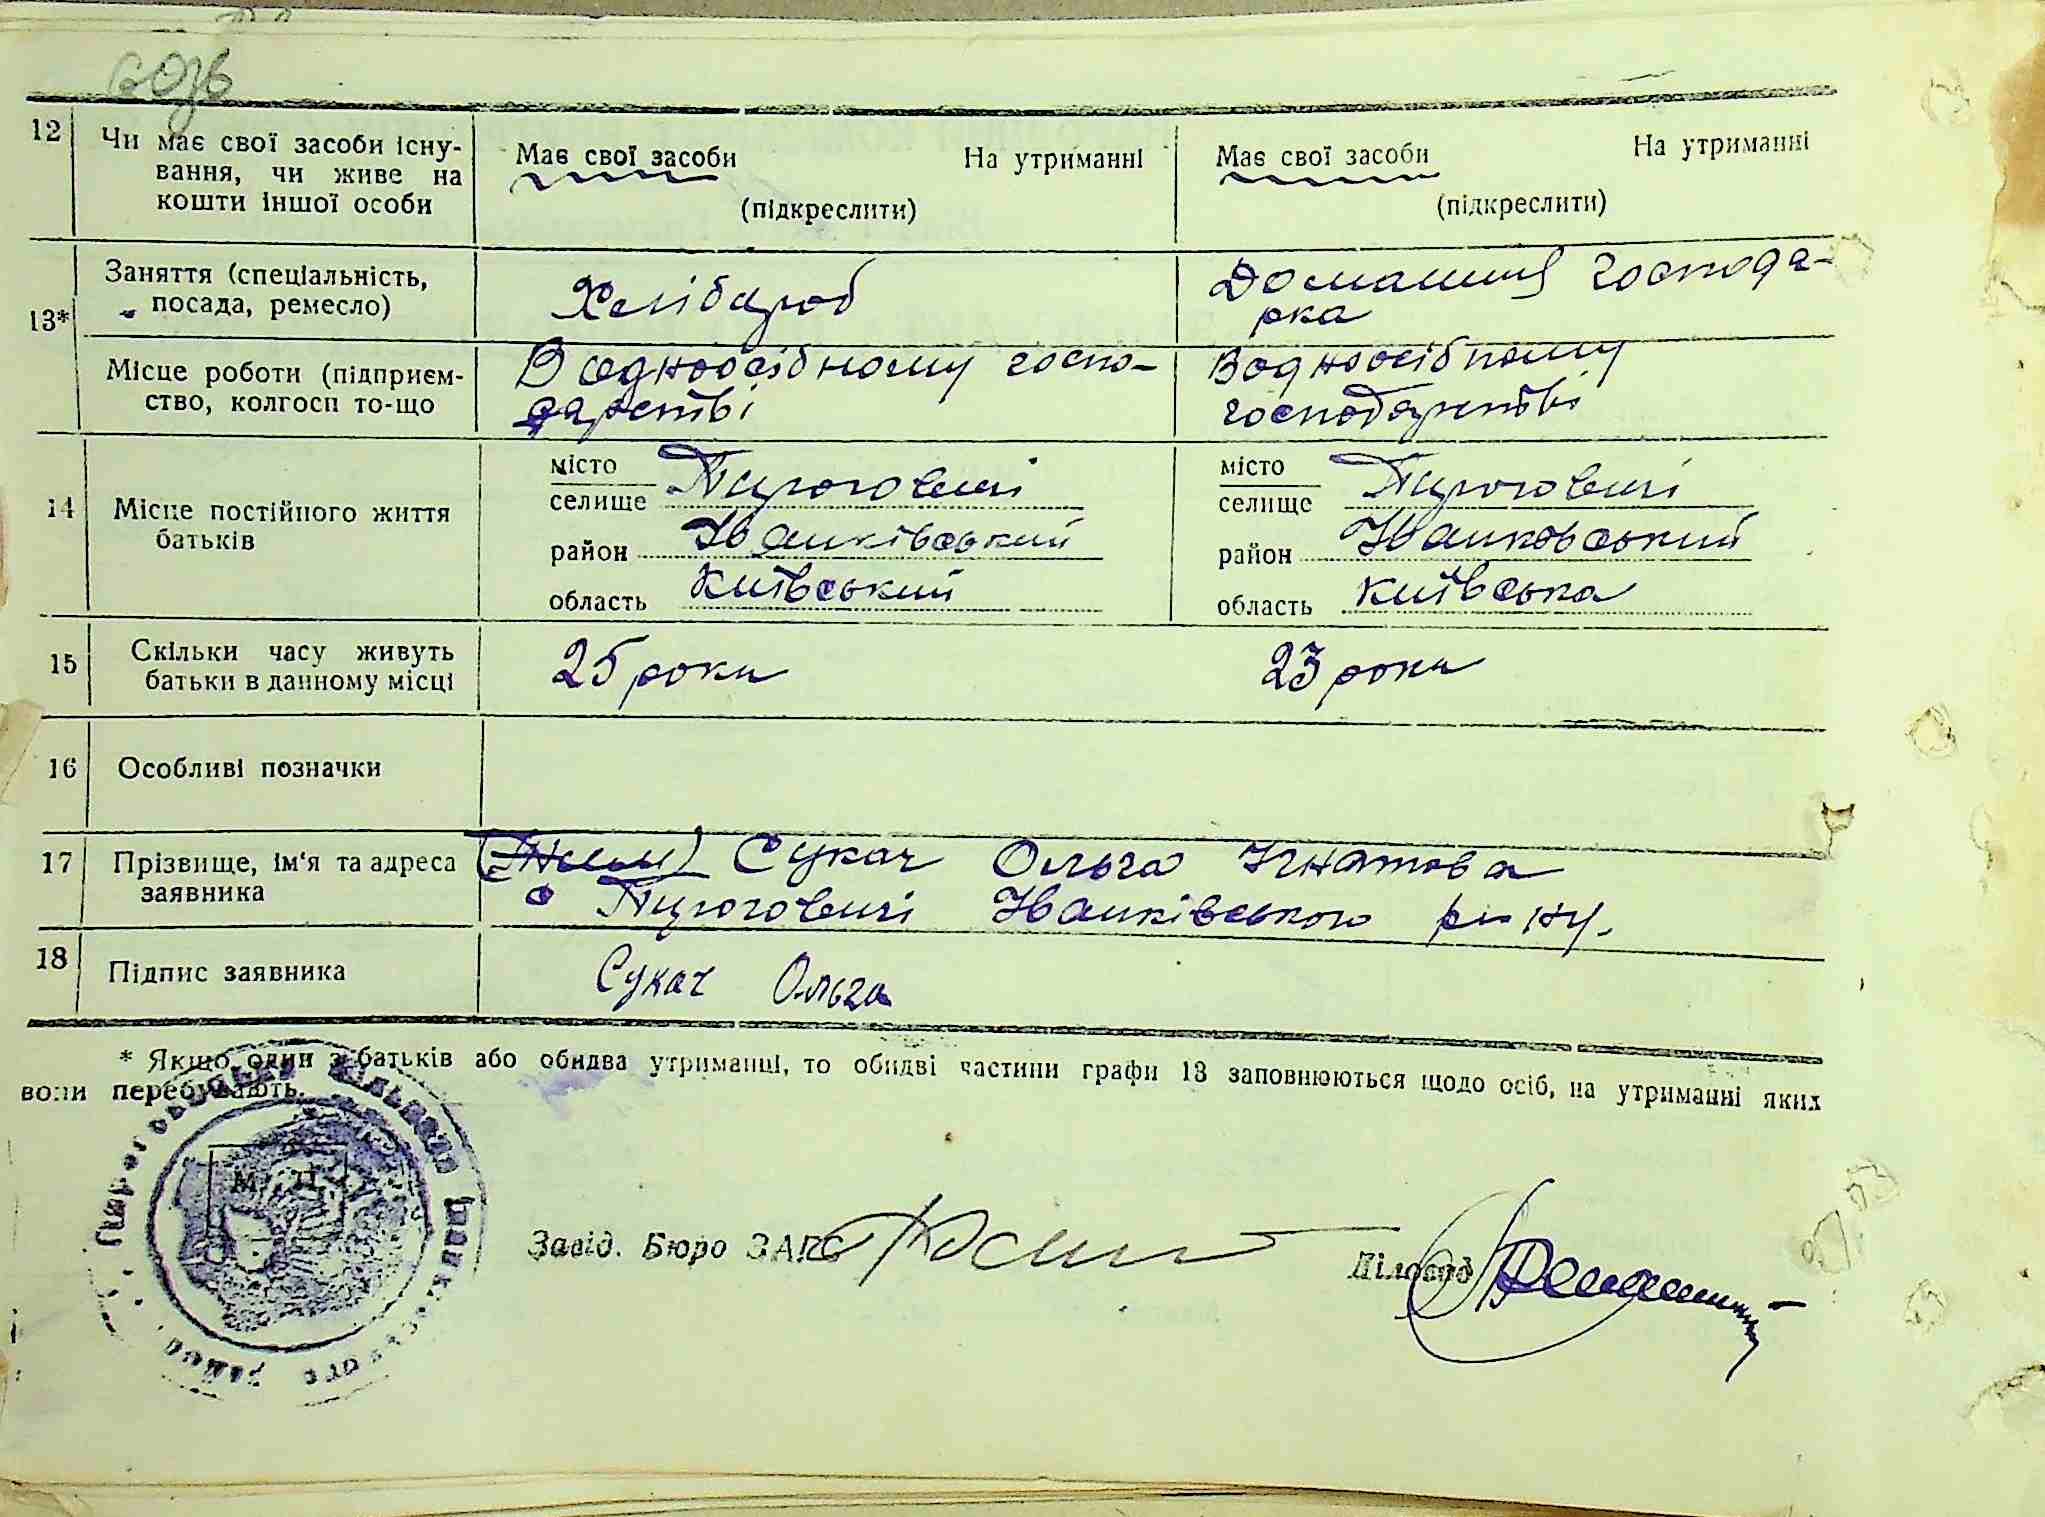 12 Чи має свої засоби існу-
вання, чи живе на
кошти іншої особи
Має свої засоби На утриманні
(підкреслити)
Має свої засоби На утриманні
(підкреслити)
13*
Заняття (спеціальність,
посада, ремесло)
Хлібароб
Домашня господа-
рка
Місце роботи (підприєм-
ство, колгосп то-що
В одноосібному госпо-
дарстві
В одноосібному
господарстві
14 Місце постійного життя
батьків
місто
селище Пироговичі
район Іванківський
область Київський
місто
селище Пироговичі
район Іванковський
область Київська
15 Скільки часу живуть
батьки в данному місці
25 роки
23 роки
16 Особливі позначки
17 Прізвище, ім'я та адреса
заявника
Сукач Ольга Ігнатова
с Пироговичі Іванківського р-ну.
18 Підпис заявника
Сукач Ольга
* Якщо один з батьків або обидва утриманці, то обидві частини графи 13 заповнюються щодо осіб, на утриманні яких
вони перебувають.
М. П.
Завід. Бюро ЗАГС
Діловод